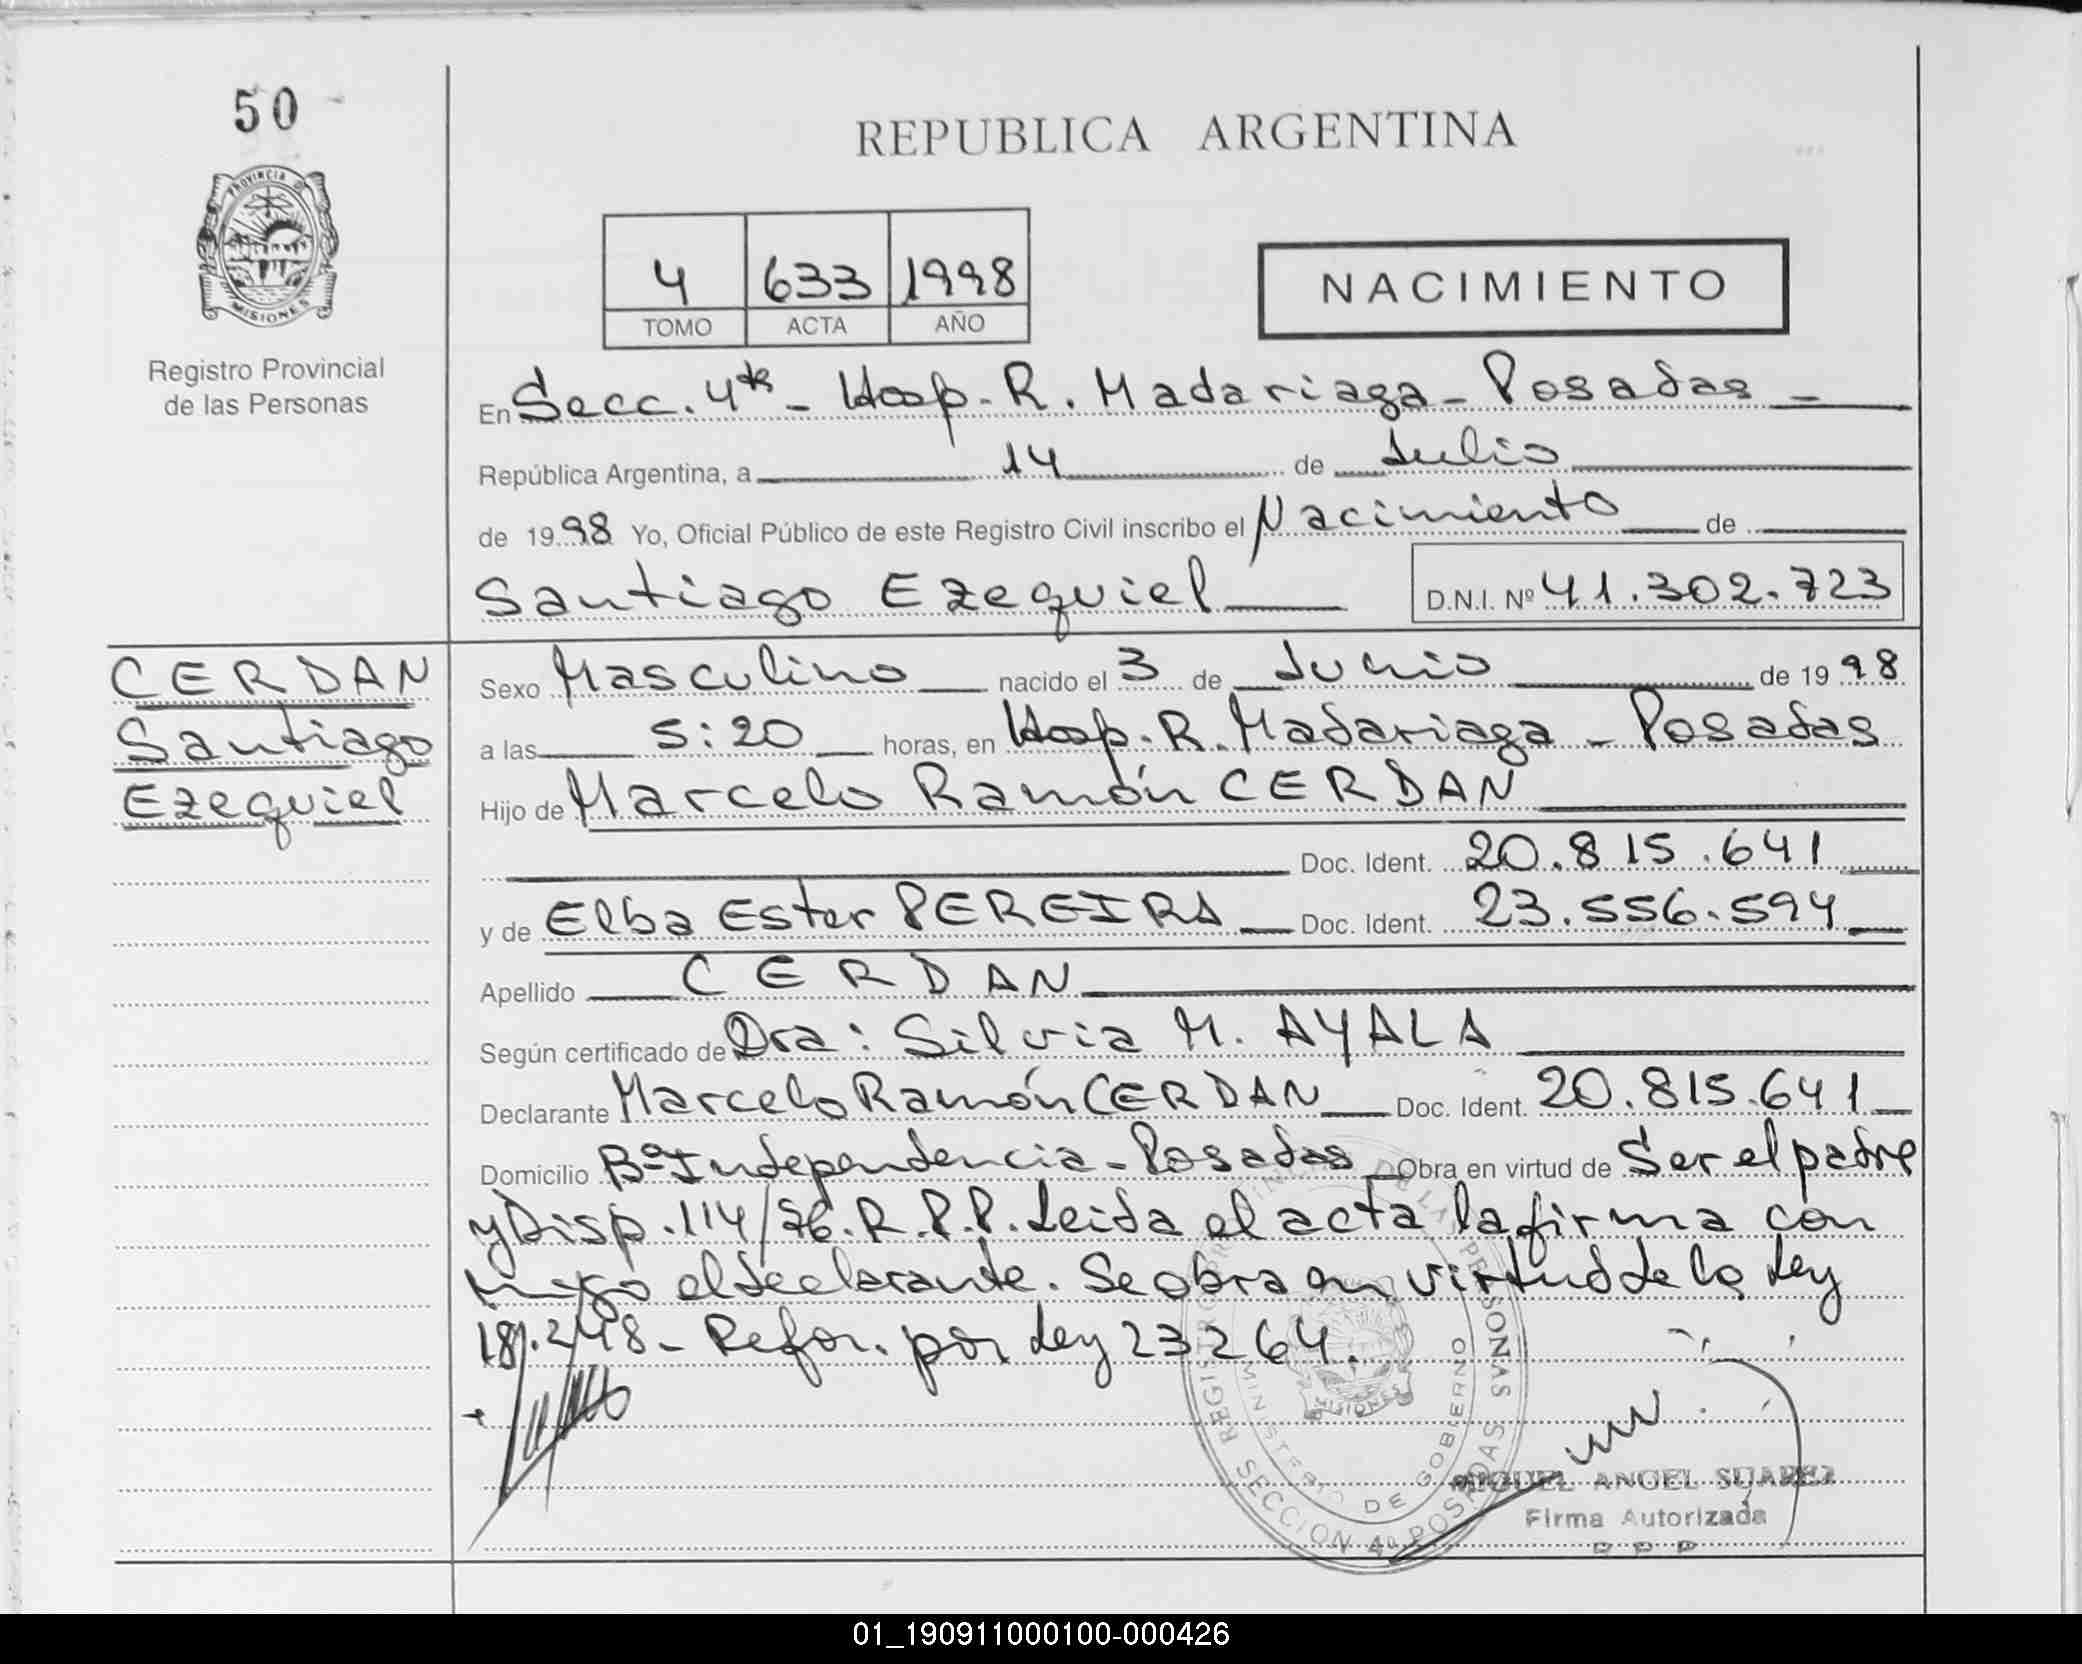 50
REPUBLICA ARGENTINA
PROVINCIA D
MISIONES
4 633 1998
TOMO ACTA AÑO
NACIMIENTO
Registro Provincial
de las Personas
En Secc. 4ta - Hosp. R. Madariaga - Posadas -
República Argentina, a 14 de Julio
de 1998 Yo, Oficial Público de este Registro Civil inscribo el Nacimiento de
Santiago Ezequiel D.N.I. Nº 41.302.723
CERDAN
Santiago
Ezequiel
Sexo Masculino nacido el 3 de Junio de 1998
a las 5:20 horas, en Hosp. R. Madariaga - Posadas
Hijo de Marcelo Ramón CERDAN
Doc. Ident. 20.815.641
y de Elba Ester PEREIRA Doc. Ident. 23.556.594
Apellido CERDAN
Según certificado de Dra: Silvia M. AYALA
Declarante Marcelo Ramón CERDAN Doc. Ident. 20.815.641
Domicilio Bº Independencia - Posadas Obra en virtud de Ser el padre
y Disp. 114/76. R.P.P. Leida el acta la firma con
migo el declarante. Se obra en virtud de la Ley
18.248 - Refor. por Ley 23264.
REGISTRO PROVINCIAL DE LAS PERSONAS
MINISTERIO DE GOBIERNO
MISIONES
SECCION 4º POSADAS
MIGUEL ANGEL SUAREZ
Firma Autorizada
R P P
01_190911000100-000426